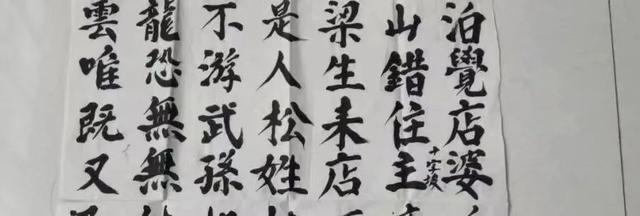 泊覺店婆
山錯住主
十字坡
梁生未店
是人松姓
不游武孫
龍恐無無
雲唯既又